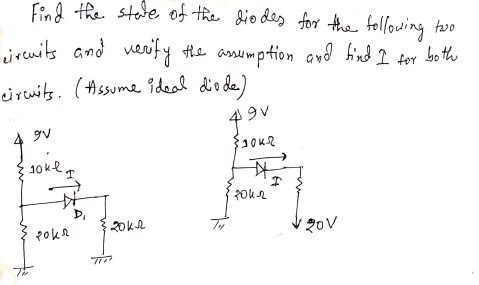 Find the state of the diodes for the following two
circuits and verify the assumption and find I for both
circuits. (Assume ideal diode)
9V
10kΩ
I
D1
20kΩ
20kΩ
9V
10kΩ
I
20kΩ
20V